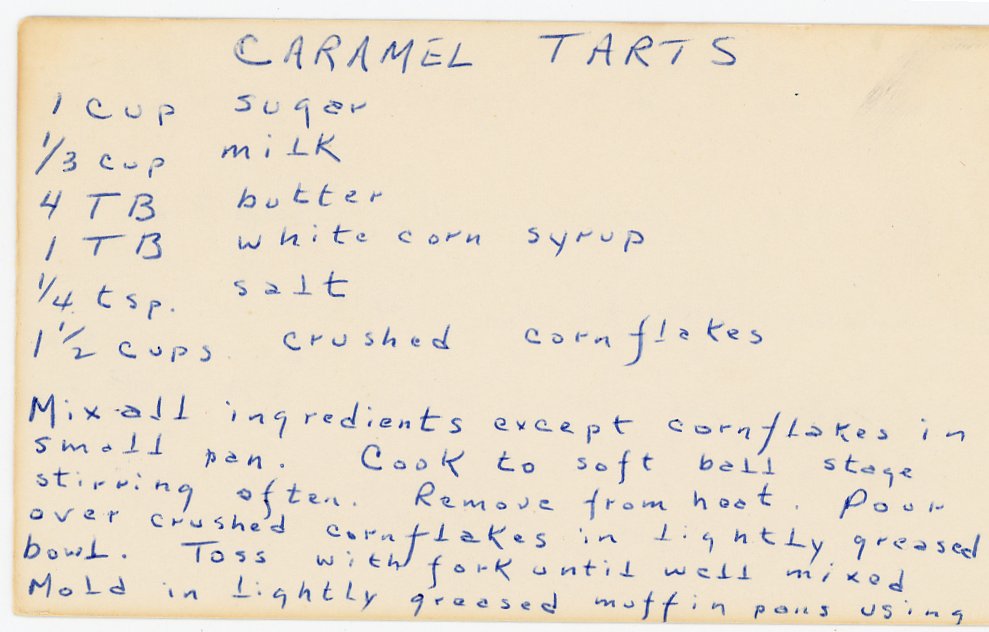 CARAMEL TARTS
1 cup sugar
1/3 cup milk
4 TB butter
1 TB white corn syrup
1/4 tsp. salt
1 1/2 cups crushed cornflakes
Mix all ingredients except cornflakes in
small pan. Cook to soft ball stage
stirring often. Remove from heat. Pour
over crushed cornflakes in lightly greased
bowl. Toss with fork until well mixed
Mold in lightly greased muffin pans using